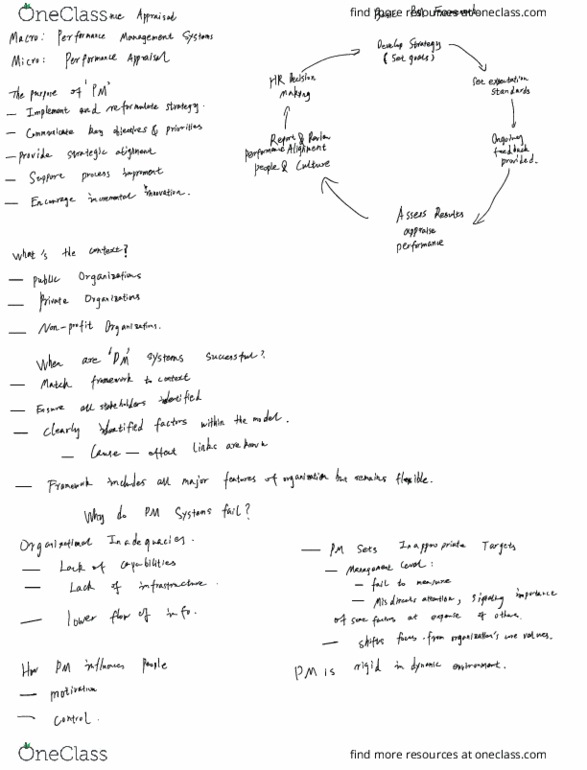 OneClass
find more resources at oneclass.com
Appraisal
Macro: Performance Management Systems
Micro: Performance Appraisal
The purpose of 'PM'
- Implement and reformulate strategy.
- Communicate key objectives & priorities
- Provide strategic alignment
- Support process improment
- Encourage incremental innovation.
Develop Strategy
(Set goals)
Set expectation
standards
Ongoing
feedback
provided.
Assess Results
appraise
performance
Report & Review
Performance Alignment
people & Culture
HR Decision
making
What's the context?
- public Organizations
- Private Organizations
- Non-profit Organizations.
When are 'PM' systems successful?
- Match framework to context
- Ensure all stakeholders identified
- Clearly identified factors within the model.
- Cause - effect links are known
- Framework includes all major features of organization but remains flexible.
Why do PM Systems fail?
Organizational Inadequacies.
- Lack of capabilities
- Lack of infrastructure.
- lower flow of info.
- PM sets Inappropriate Targets
- Management Level:
- fail to measure
- Misdirects attention, signaling importance
of some factors at expense of others.
- shifts focus from organization's core values.
How PM influences people
- motivation
- control.
PM is rigid in dynamic environment.
OneClass
find more resources at oneclass.com